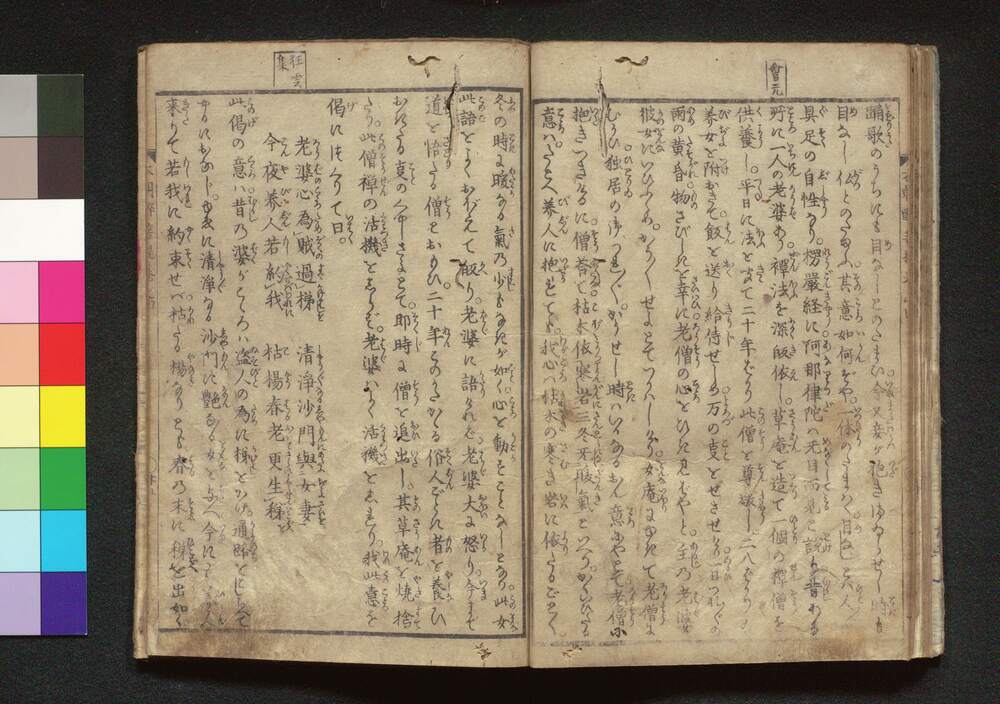 會元
踊歌のうちにも目なしとのたまひ今又妾が抱きゆるうせし時も
目なし〳〵とのたまふ其意如何ぞや一休のたまはく目なしとハ人〻
具足の自性なり楞嚴経に阿那律陀ハ无目而見と説り昔ある
所に一人の老婆あり禪法を深皈依し草菴を造て一個の禪僧を
供養し平日に法を
て二十年ばかり此僧を尊敬し二八ばかりの
養女を附おきて飯を送り給侍せしめ万の支をせさせけり一日つれ〴〵の
雨の黄昏物さびしきを幸に老僧の心をひき見ばやと主の老婆
彼女にいひふくめかく〳〵せよとてつかハしけり女庵にゆきて老僧に
むかひ独居の御つれ〴〵かうせし時ハいかなる御意にやとて老僧に
抱きつきけるに僧荅て枯木依寒岩三冬无暖氣といへりかくいひたる
意ハたとへ美人に抱れても我心ハ枯木の寒き岩に依たるごとく
冬の時に暖なる氣の少もなきが如く心を動すことなしとなり此女
此語をよくおぼえて皈り老婆に語りければ老婆大に怒り今まで
道を悟たる僧とおもひ二十年このかたかゝる俗人ごとき者を養ひ
おきたる支の
さよとて即時に僧を追出し其草庵を焼捨
たり此僧禅の活機をしらず老婆ハよく活機をしれり我此意を
偈につくりて曰
狂雲集
老婆心為賊過梯　清浄沙門與女妻
今夜美人若約我　枯楊春老更生稊
此偈の意ハ昔の婆がこゝろハ盗人の為に梯をかけ通路をしへて
やるにおなじゆゑに清浄なる沙門に艶なる女を与へ今にても美人
来りて若我に約束せバ枯たる楊なりとも春の末に稊を出如く